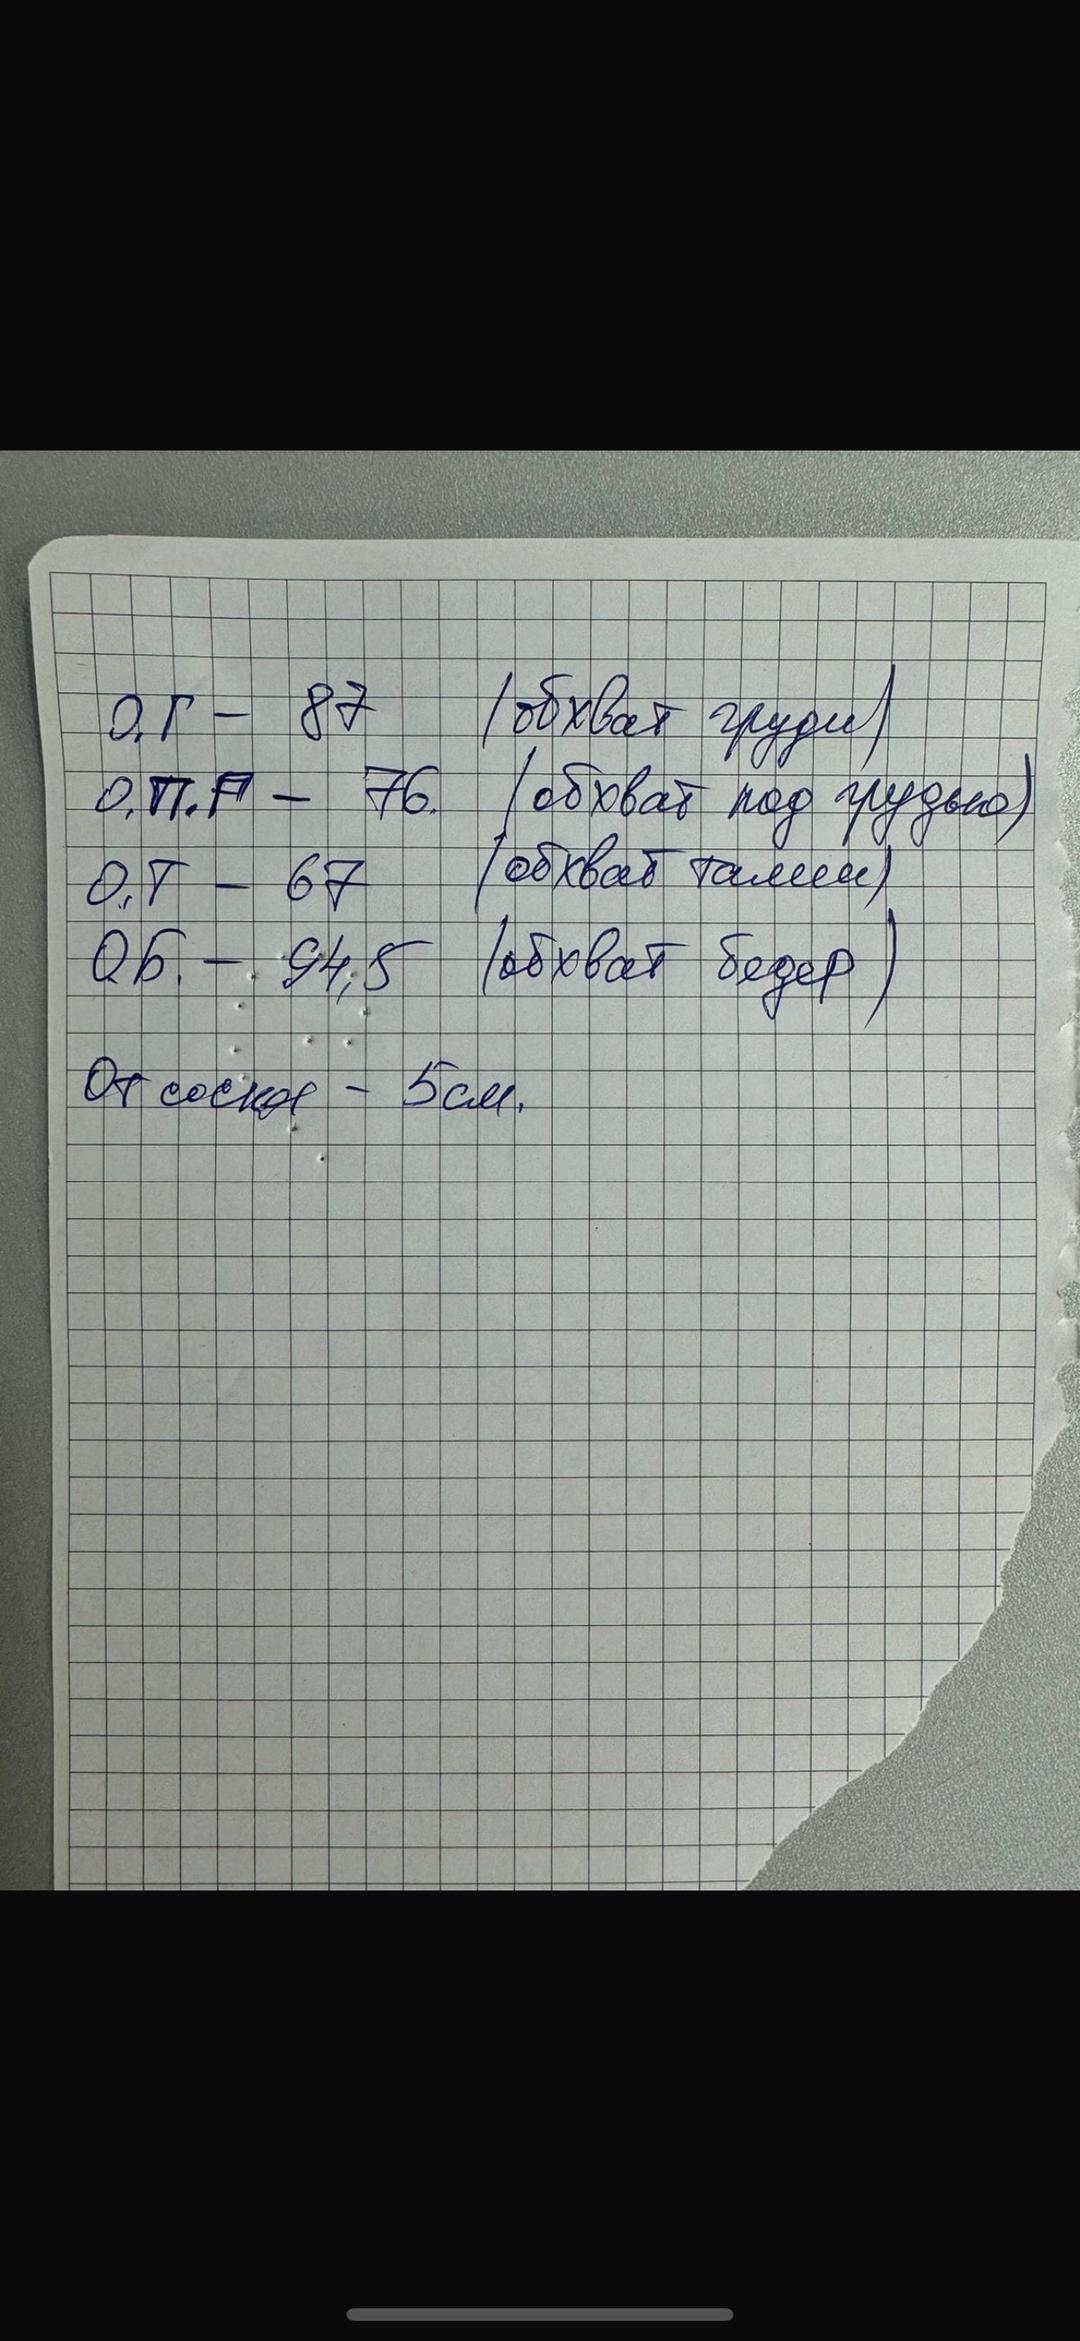 О.Г – 87 (обхват груди)
О.П.Г – 76. (обхват под грудью)
О.Т – 67 (обхват талии)
О.Б. – 94,5 (обхват бедер)
От соска – 5см.